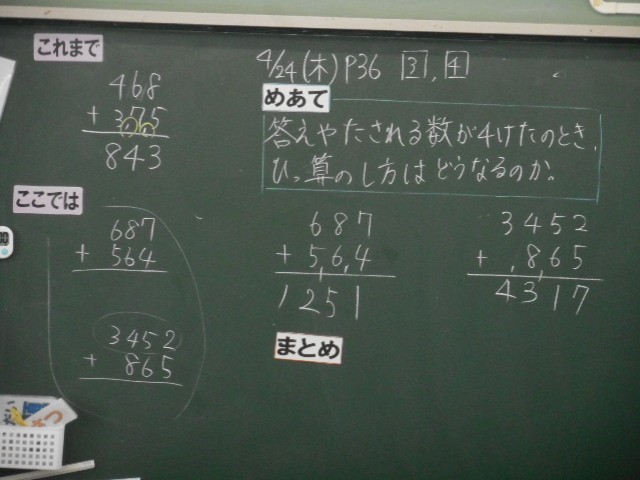 これまで
468
+ 375
843
ここでは
687
+ 564
3452
+ 865
4/24(木)P36 3, 4
めあて
答えやたされる数が4けたのとき、
ひっ算のし方はどうなるのか。
687
+ 564
1251
3452
+ 865
4317
まとめ